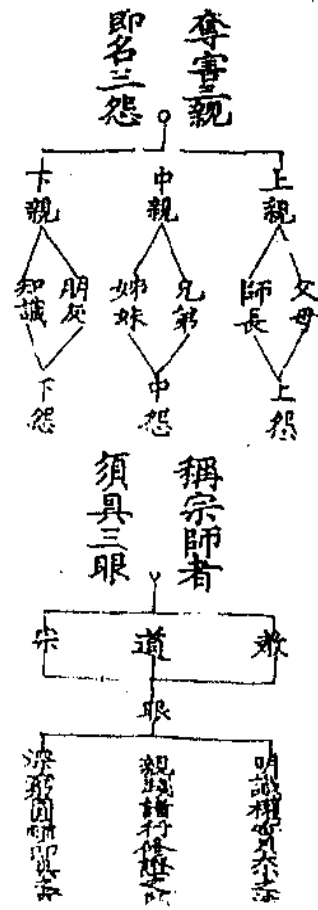 奪害三親
即名三怨
上親
中親
下親
父母
師長
兄弟
姊妹
朋友
知識
上怨
中怨
下怨
稱宗師者
須具三眼
教
道
宗
眼
明識權實大小之法
親踐諸行修證之